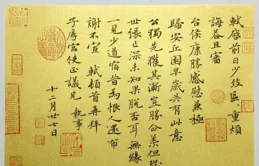 軾啟前日少致區區重煩
誨答且審
台候康勝感慰兼極
歸安丘園早歲共有此意
公獨先獲其漸豈勝企羨但恐
世緣已深未知果脫否耳無緣
一見少道宿昔為恨人還布
謝不宣 軾頓首再拜
子厚宮使正議兄執事
十二月廿七日